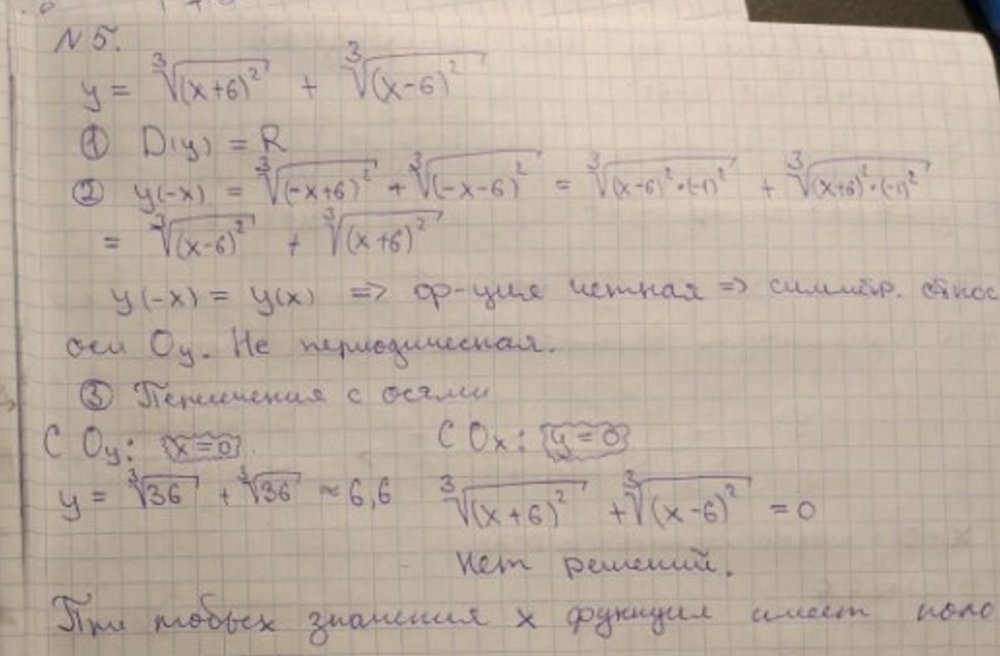 N 5.
y = ∛(x+6)² + ∛(x-6)²
① D(y) = R
② y(-x) = ∛(-x+6)² + ∛(-x-6)² = ∛(x-6)²·(-1)² + ∛(x+6)²·(-1)²
= ∛(x-6)² + ∛(x+6)²
y(-x) = y(x) => ф-ция четная => симметр. относ
оси Oy. Не периодическая.
③ Пересечения с осями
С Oy: x=0 С Ox: y=0
y = ∛36 + ∛36 ≈ 6,6 ∛(x+6)² + ∛(x-6)² = 0
Нет решений.
При любых значения x функция имеет поло